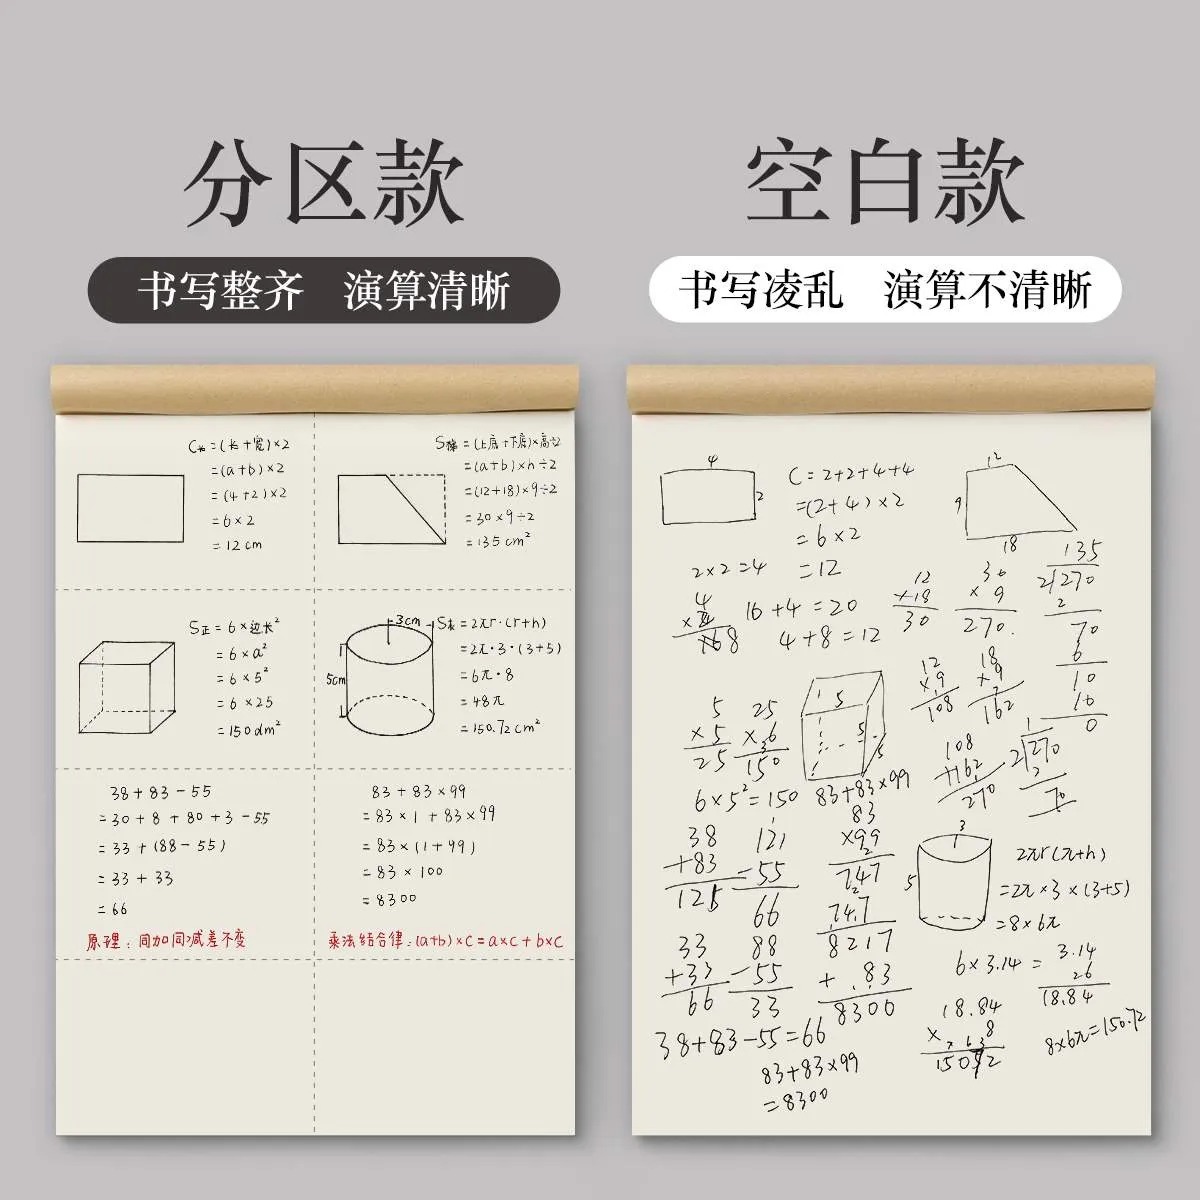 分区款
书写整齐 演算清晰
C长=(长+宽)×2
=(a+b)×2
=(4+2)×2
=6×2
=12cm
S梯=(上底+下底)×高÷2
=(a+b)×h÷2
=(12+18)×9÷2
=30×9÷2
=135cm²
S正=6×边长²
=6×a²
=6×5²
=6×25
=150dm²
3cm
5cm
S表=2πr·(r+h)
=2π·3·(3+5)
=6π·8
=48π
=150.72cm²
38+83-55
=30+8+80+3-55
=33+(88-55)
=33+33
=66
原理:同加同减差不变
83+83×99
=83×1+83×99
=83×(1+99)
=83×100
=8300
乘法结合律:(a+b)×c=a×c+b×c
空白款
书写凌乱 演算不清晰
4
2
C=2+2+4+4
=(2+4)×2
=6×2
=12
12
9
18
2×2=4
4
16+4=20
4+8=12
12
×18
30
30
×9
270.
135
2√270
2
70
6
10
10
0
5
×5
25
25
×6
150
5
5
5
12
×9
108
18
×9
162
108
+162
270
1
2√270
2
70
6×5²=150
83+83×99
38
+83
121
-55
66
83
×99
747
747
8217
+83
8300
3
5
2πr(π+h)
=2π×3×(3+5)
=8×6π
33
+33
66
88
-55
33
6×3.14=
3.14
18.84
18.84
×8
8×6π=150.72
38+83-55=66
83+83×99
=8300